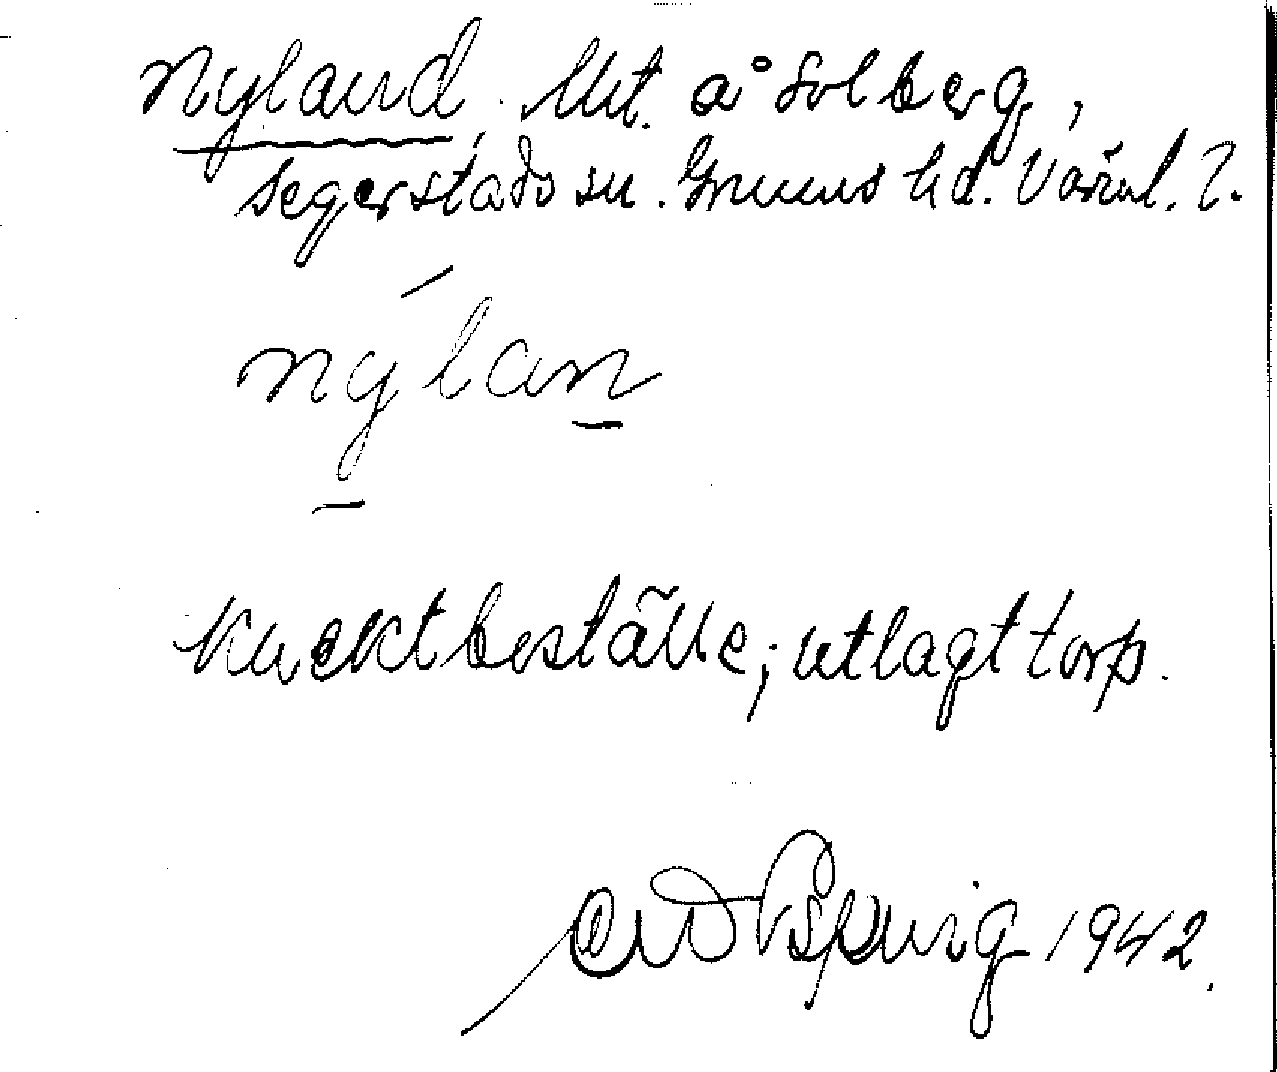 Nyland, Mt. å Solberg,
Segerstads sn. Grums hd. Värml. l.
nýlan
Knektbeställe; utlagt torp.
1942.